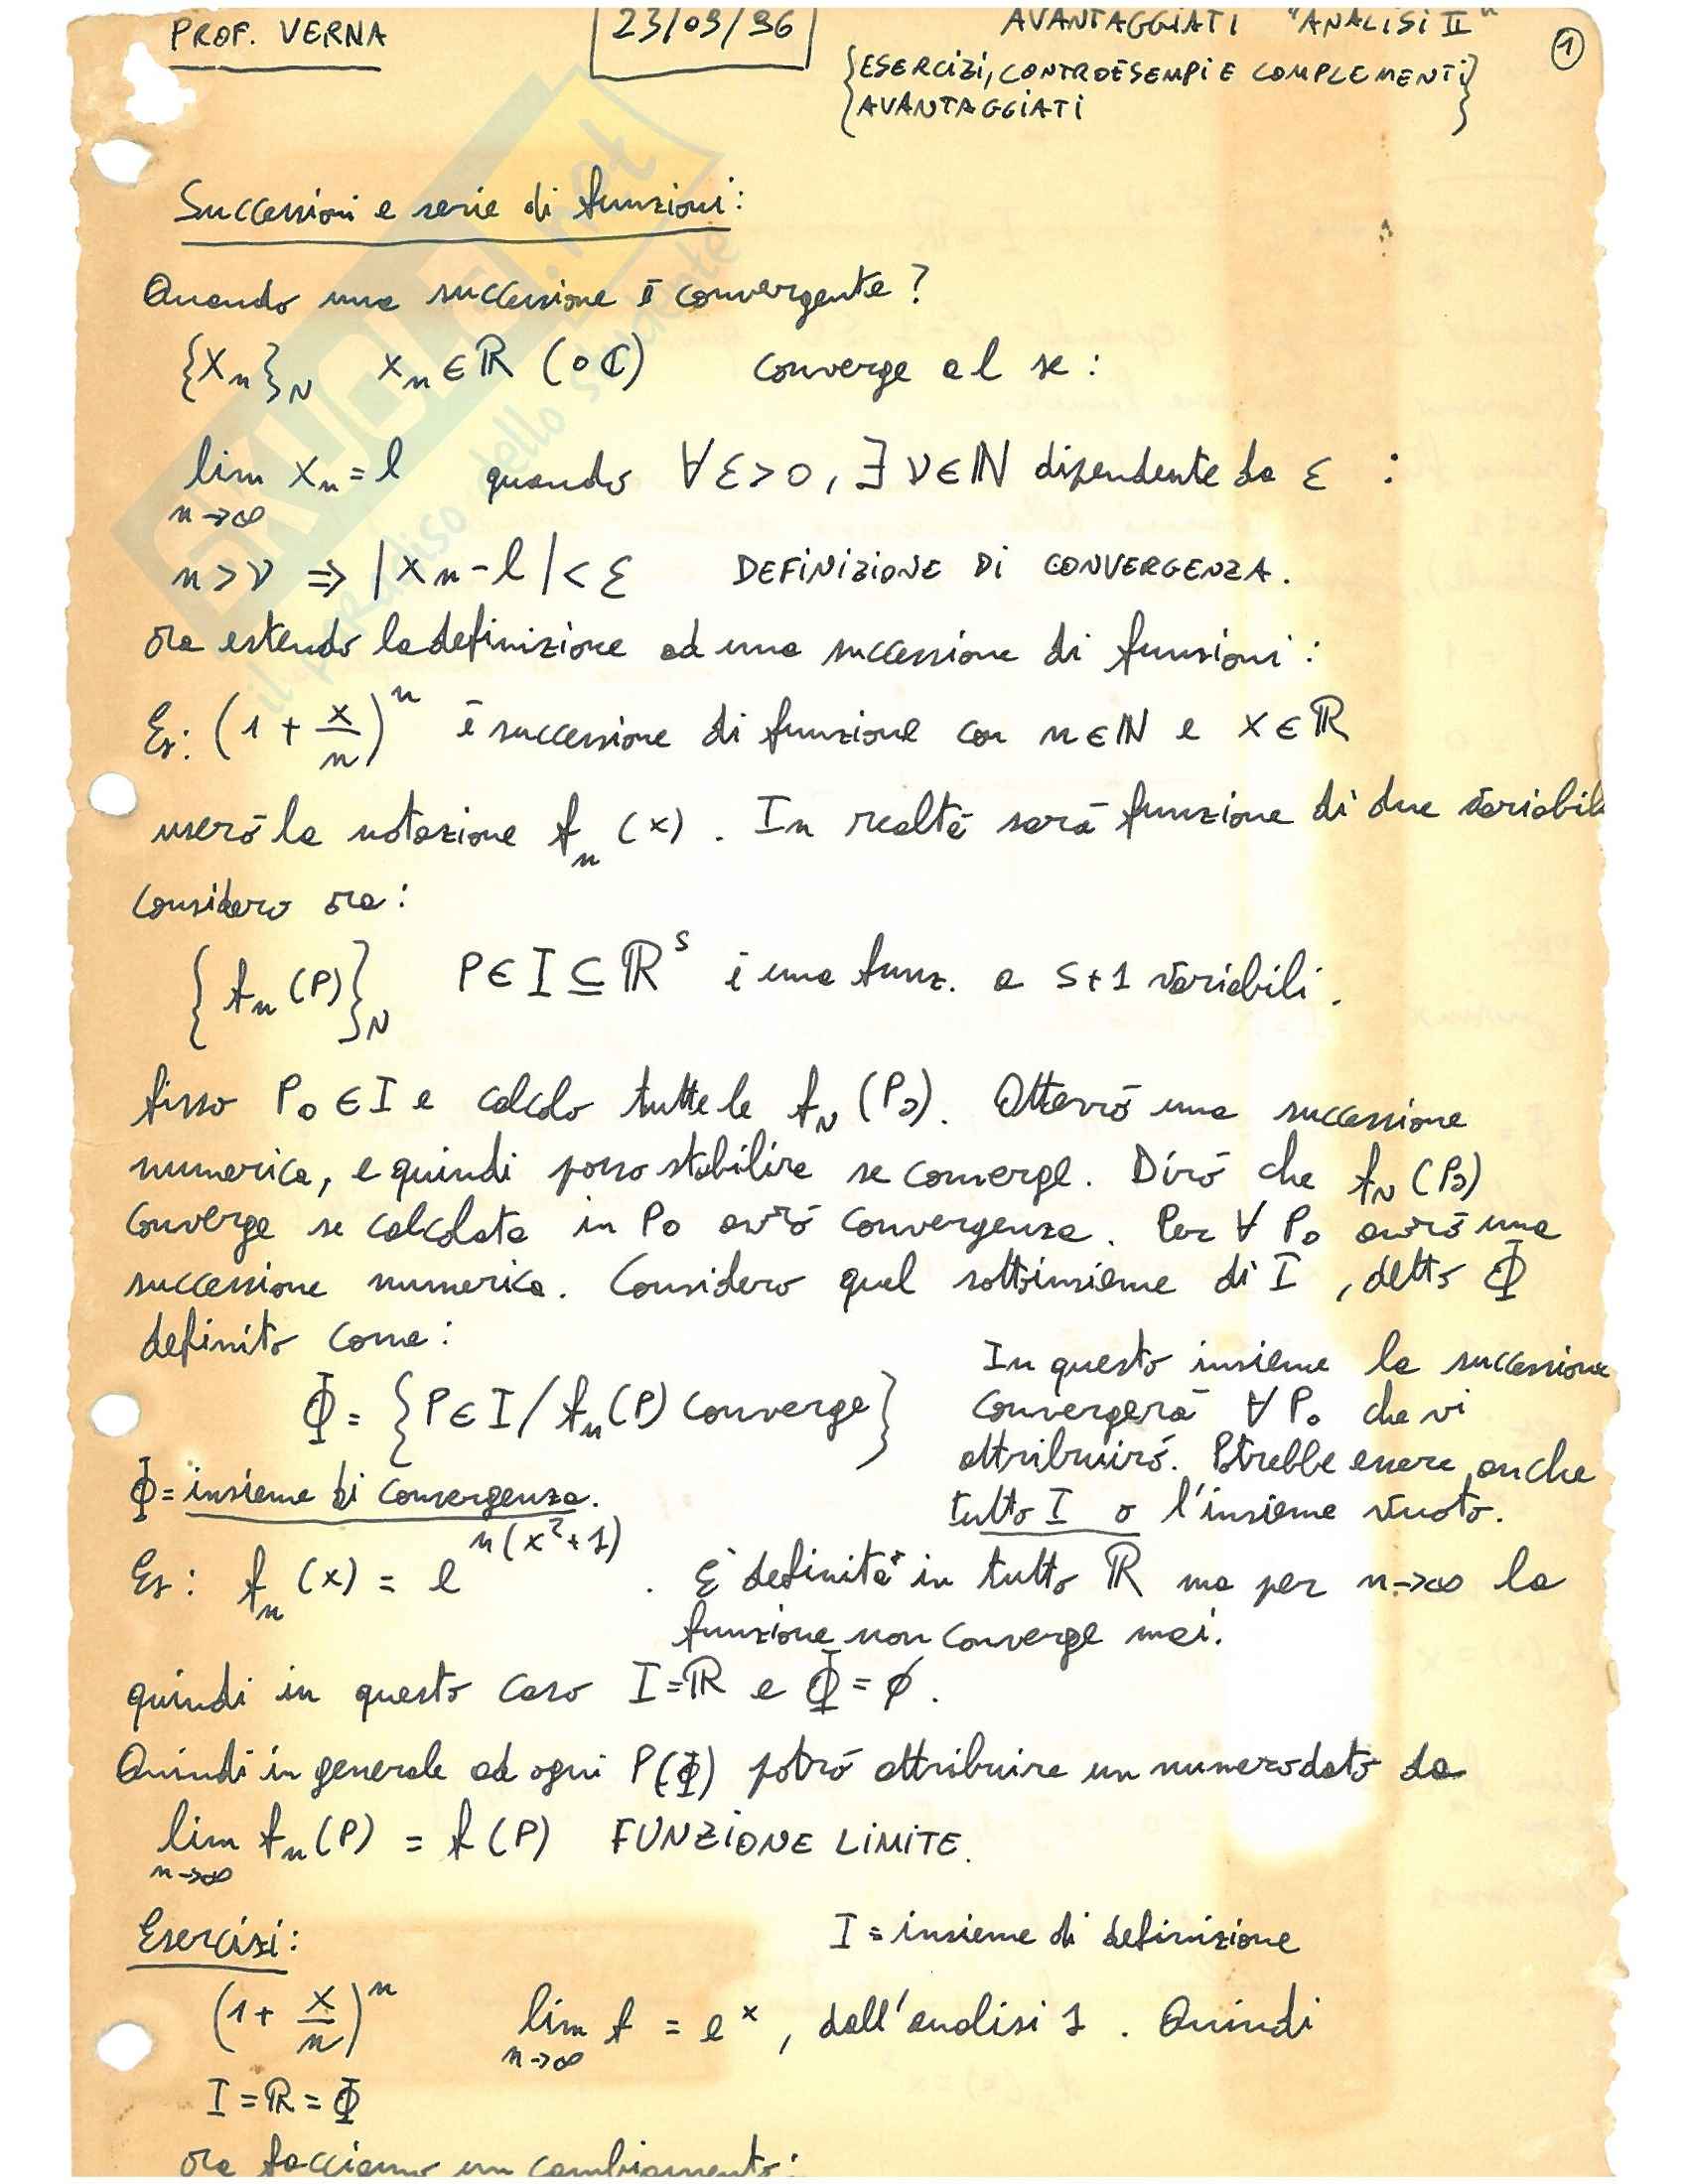 PROF. VERNA
23/09/96
AVANTAGGIATI "ANALISI II"
1
{ESERCIZI, CONTROESEMPI E COMPLEMENTI}
AVANTAGGIATI
Successioni e serie di funzioni:
Quando una successione è convergente?
{Xn}N Xn ∈ ℝ (o ℂ) converge a l se:
lim n→∞ Xn = l quando ∀ε>0, ∃ ν∈ℕ dipendente da ε :
n>ν ⇒ |Xn-l|<ε DEFINIZIONE DI CONVERGENZA.
Ora estendo la definizione ad una successione di funzioni:
Es: (1 + x/n)^n è successione di funzione con n∈ℕ e x∈ℝ
userò la notazione fn (x). In realtà sarà funzione di due variabil
considero ora:
{fn (P)}N P∈I⊆ℝ^s è una funz. a s+1 variabili.
fisso P0 ∈ I e calcolo tutte le fN (P0). Otterrò una successione
numerica, e quindi posso stabilire se converge. Dirò che fN (P0)
converge se calcolata in P0 avrò convergenza. Per ∀ P0 avrò una
successione numerica. Considero quel sottoinsieme di I, detto Φ
definito come:
Φ = {P∈I / fn(P) converge}
In questo insieme la successione
convergerà ∀ P0 che vi
attribuirò. Potrebbe essere anche
tutto I o l'insieme vuoto.
Φ = insieme di convergenza.
Es: fn (x) = e^n(x²+1). È definita in tutto ℝ ma per n→∞ la
funzione non converge mai.
quindi in questo caso I=ℝ e Φ=∅.
Quindi in generale ad ogni P(∈Φ) potrò attribuire un numero dato da
lim n→∞ fn(P) = f(P) FUNZIONE LIMITE.
Esercizi: I = insieme di definizione
(1+ x/n)^n lim n→∞ f = e^x, dall'analisi 1. Quindi
I=ℝ=Φ
ora facciamo un cambiamento: